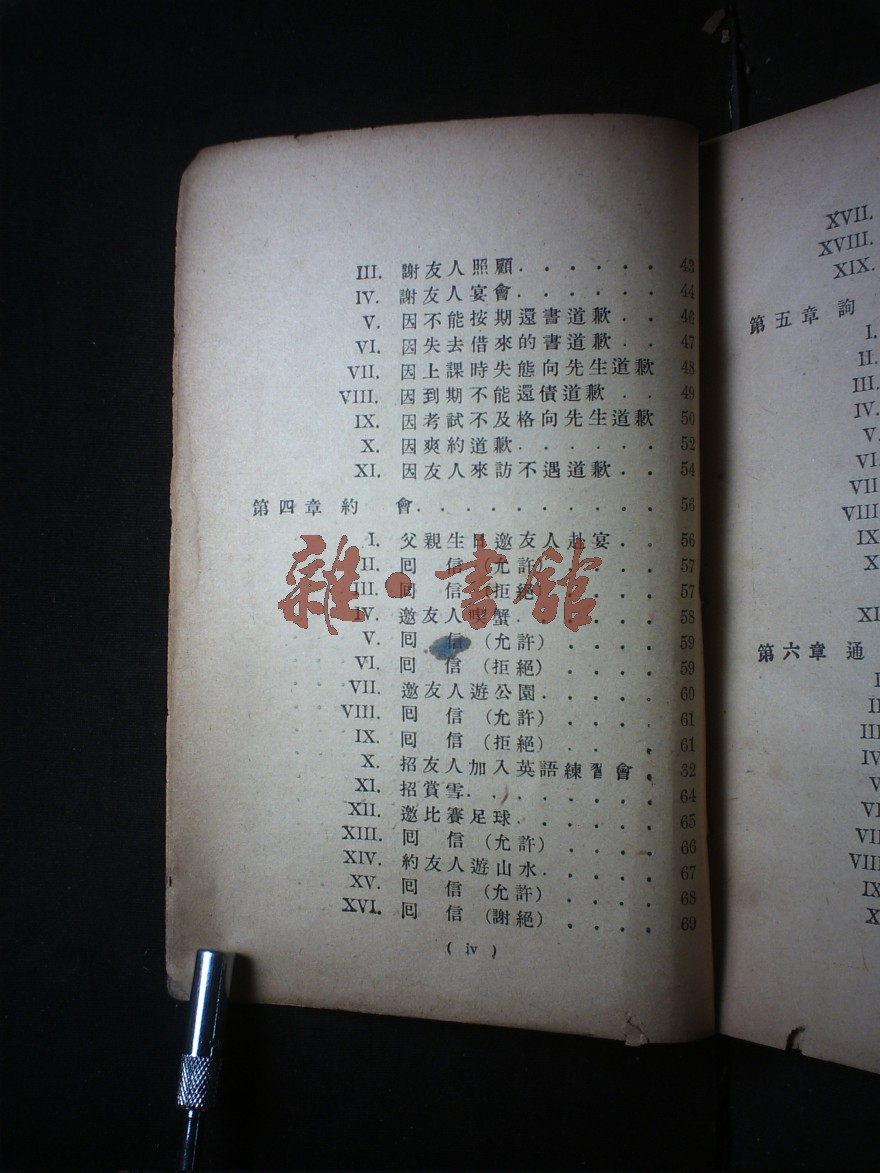 III. 謝友人照顧 . . . . . . 43
IV. 謝友人宴會 . . . . . . 44
V. 因不能按期還書道歉 . . 46
VI. 因失去借來的書道歉 . . 47
VII. 因上課時失態向先生道歉 48
VIII. 因到期不能還債道歉 . . 49
IX. 因考試不及格向先生道歉 50
X. 因爽約道歉 . . . . . . 52
XI. 因友人來訪不遇道歉 . . 54
第四章 約 會 . . . . . . . . . . 56
I. 父親生日邀友人赴宴 . . 56
II. 囘 信 (允許) . . . . 57
III. 囘 信 (拒絕) . . . . 57
IV. 邀友人喫蟹 . . . . . . 58
V. 囘 信 (允許) . . . . 59
VI. 囘 信 (拒絕) . . . . 59
VII. 邀友人遊公園 . . . . . 60
VIII. 囘 信 (允許) . . . . 61
IX. 囘 信 (拒絕) . . . . 61
X. 招友人加入英語練習會 . 32
XI. 招賞雪 . . . . . . . . 64
XII. 邀比賽足球 . . . . . . 65
XIII. 囘 信 (允許) . . . . 66
XIV. 約友人遊山水 . . . . . 67
XV. 囘 信 (允許) . . . . 68
XVI. 囘 信 (謝絕) . . . . 69
( iv )
雜·書館
XVII.
XVIII.
XIX.
第五章 詢
I.
II.
III.
IV.
V.
VI.
VII
VIII
IX
X
XI
第六章 通
I
II
III
IV
V
VI
VII
VIII
IX
X